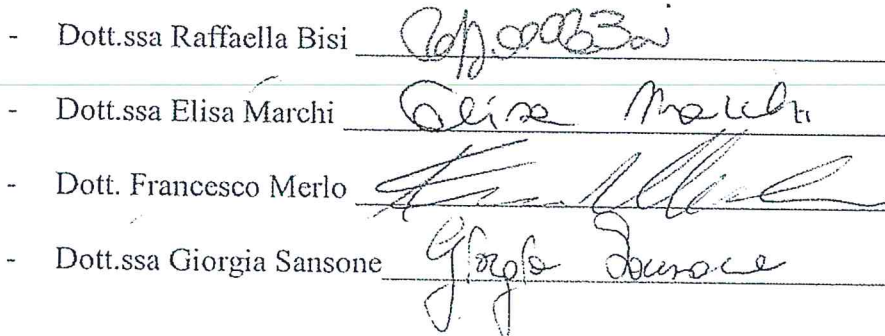 - Dott.ssa Raffaella Bisi
- Dott.ssa Elisa Marchi Elisa Marchi
- Dott. Francesco Merlo
- Dott.ssa Giorgia Sansone Giorgia Sansone